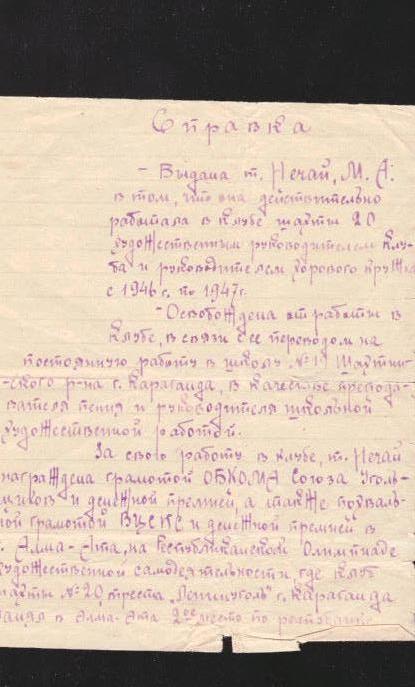 Справка
- Выдана т. Нечай, М. А.
в том, что она действительно
работала в клубе шахты 20
художественным руководителем клу-
ба и руководителем хорового кружка
с 1946 г. по 1947 г.
- Освобождена от работы в
клубе, в связи с ее переводом на
постоянную работу в школу № 1 Шахтин-
-ского р-на г. Караганда, в качестве препода-
вателя пения и руководителя школьной
художественной работой.
За свою работу в клубе, т. Нечай
награждена грамотой ОБКОМА Союза Уголь-
щиков и денежной премией, а также похваль-
ной грамотой ВЦСПС и денежной премией в
г. Алма-Ата, на Республиканской Олимпиаде
художественной самодеятельности, где клуб
шахты № 20 треста "Ленинуголь" г. Караганда
занял в Алма-Ата 2ое место по республике